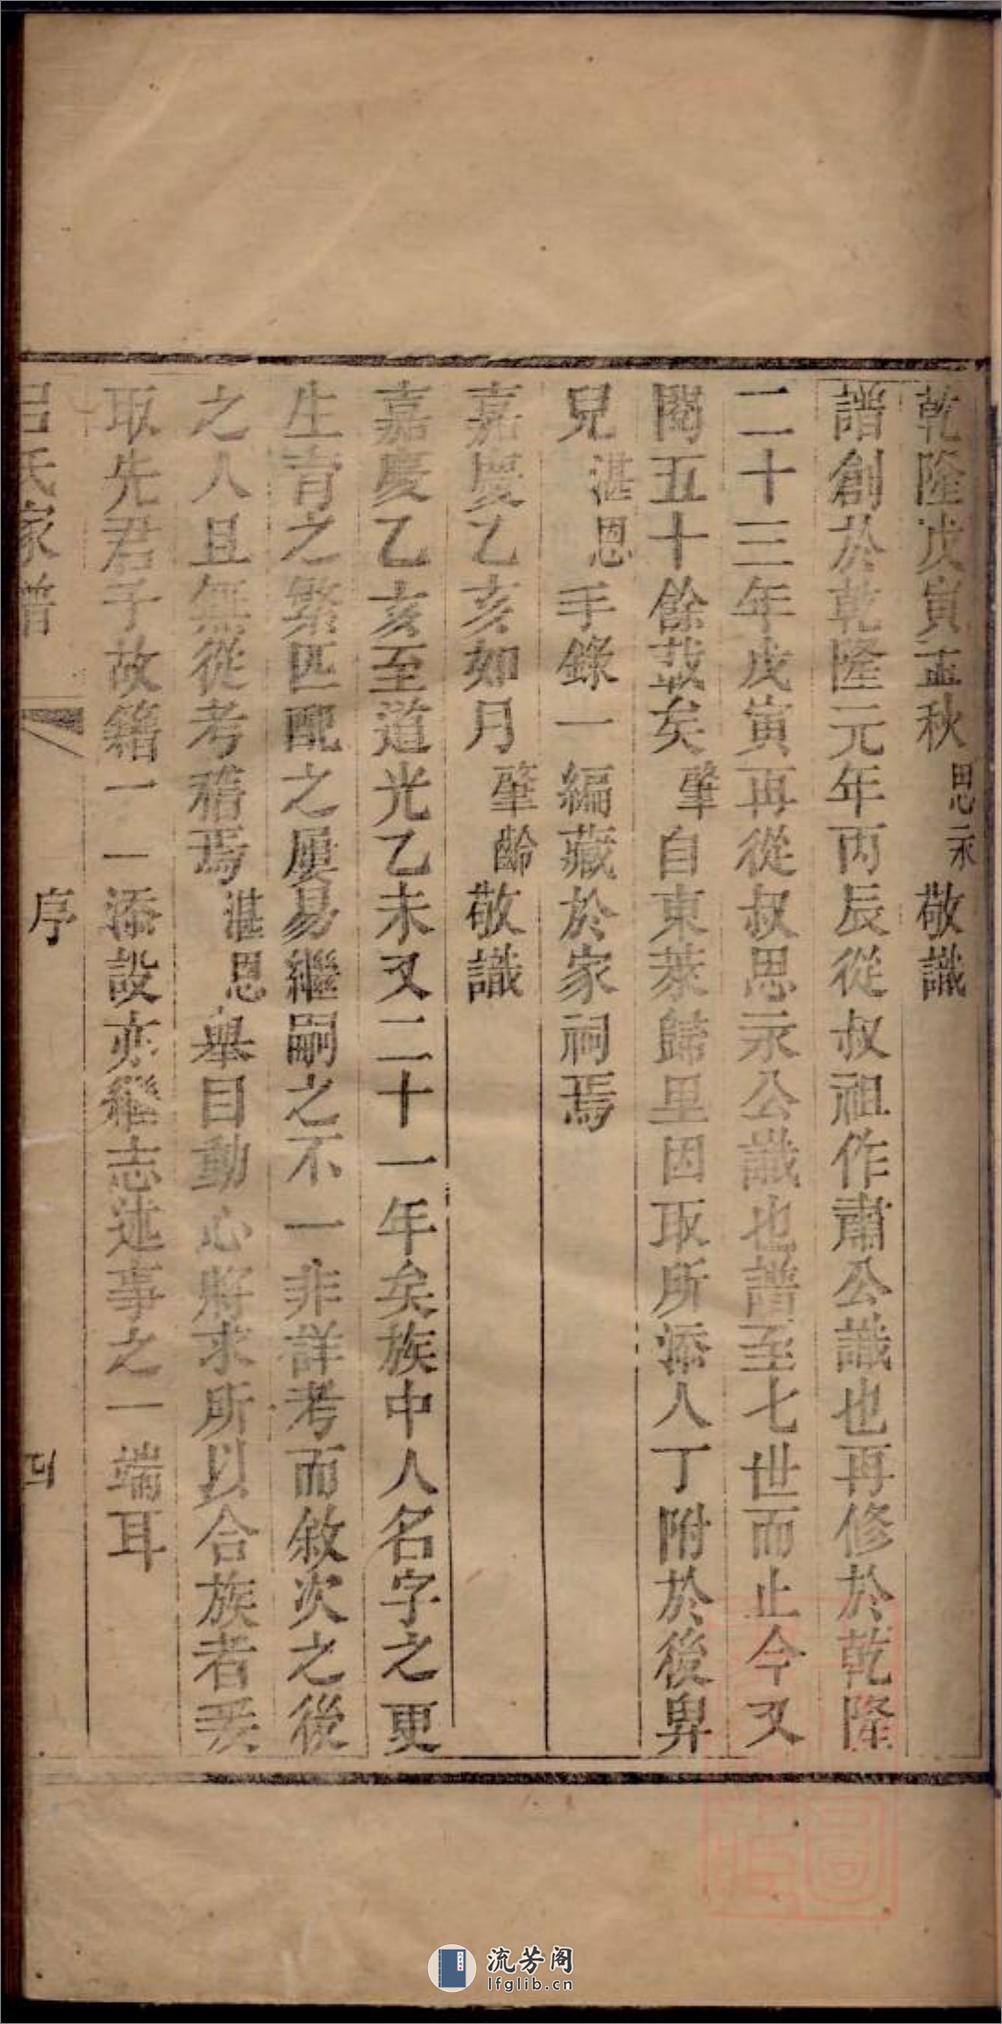 乾隆戊寅孟秋思永敬識
譜創於乾隆元年丙辰從叔祖作肅公識也再修於乾隆
二十三年戊寅再從叔思永公識也譜至七世而止今又
閱五十餘載矣肇自東萊歸里因取所添人丁附於後畀
兒湛恩手錄一編藏於家祠焉
嘉慶乙亥如月肇齡敬識
嘉慶乙亥至道光乙未又二十一年矣族中人名字之更
生育之繁匹配之屢易繼嗣之不一非詳考而敘次之後
之人且無從考稽焉湛恩舉目動心將求所以合族者爰
取先君子故籍一一添設亦繼志述事之一端耳
呂氏家譜
序
四
流芳阁
lfglib.cn